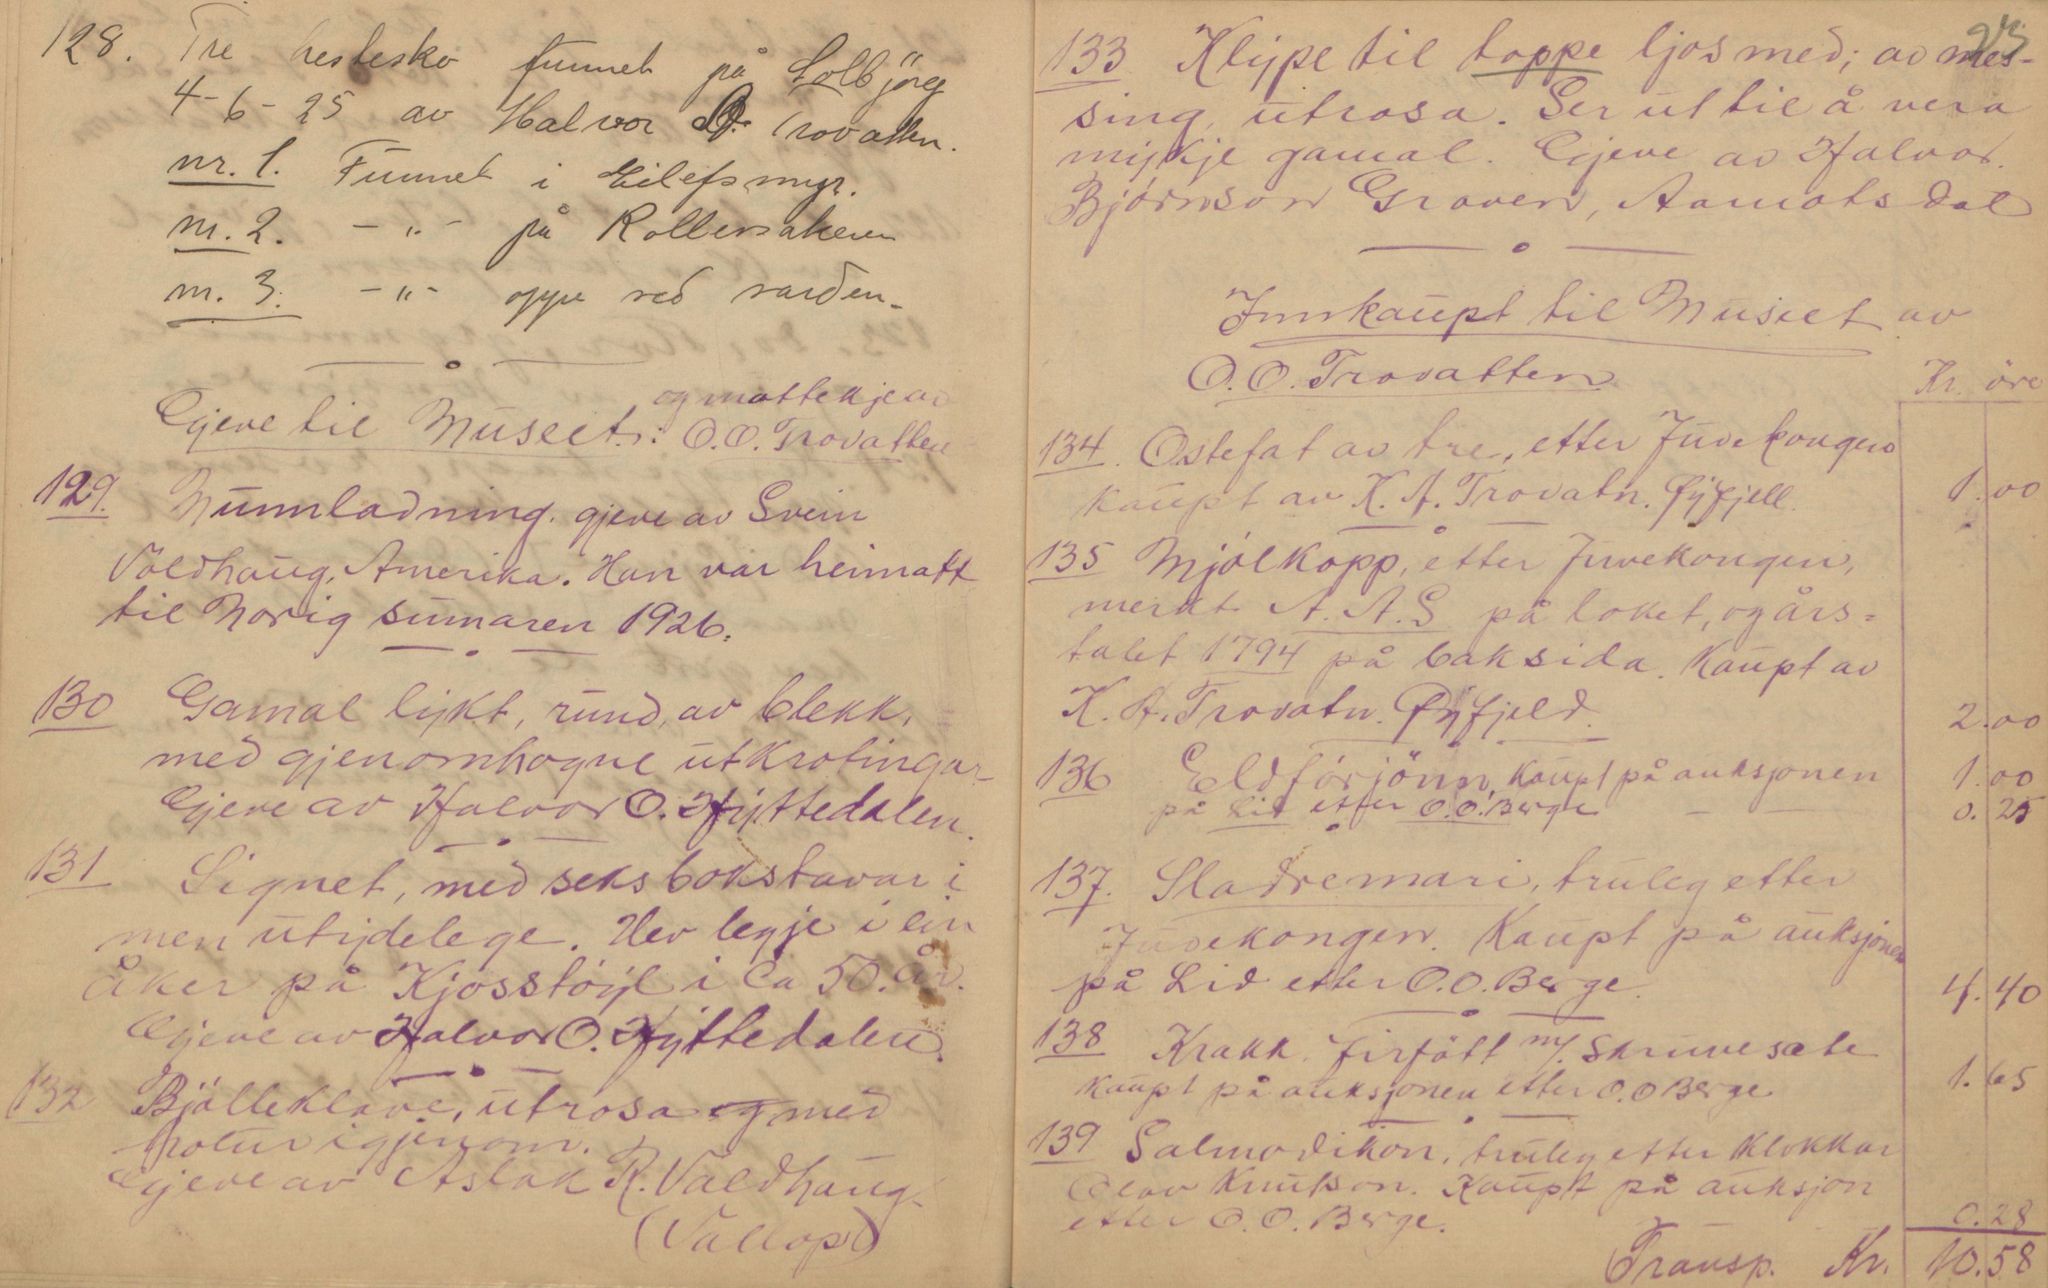 128. Tre hestesko funnet på Lolbjörg
4-6-25 av Halvor O. Trovatten.
nr. 1. Funnet i Eilefsmyr.
nr. 2. -"- på Rollersakeren
nr. 3. -"- oppe ved varden.
Gjeve til Museet: og mottekje av
O.O. Trovatten
129. Munnladning. gjeve av Svein
Valdhaug, Amerika. Han var heimatt
til Norig sumaren 1926.
130 Gamal lykt, rund, av blekk,
med gjenomhogne utkrotingar
Gjeve av Halvor O. Hyttedalen.
131 Signet, med seks bokstavar i
men utydelege. Hev legje i ein
åker på Kjosstöyl i Ca 50. år.
Gjeve av Halvor O. Hyttedalen.
132 Bjölleklave, utrosa og med
hotur igjenom.
Gjeve av Aslak R. Valdhaug.
(Vallopt)
133 Klype til toppe ljos med; av mes-
sing, utrosa. Ser ut til å vera
mykje gamal. Gjeve av Halvor
Björnson Groven, Aamotsdal
Innkaupt til Museet av
O.O. Trovatten.
Kr. öre
134. Ostefat av tre, etter Juvekongen
kaupt av K. A. Trovatn. Øyfjell. 1.00
135 Mjölkopp, etter Juvekongen,
merkt A.A.S på loket, og års=
talet 1794 på baksida. Kaupt av
K. A. Trovatn. Øyfjeld. 2.00
136 Eldförjönn, kaupt på auksjonen 1.00
på Lid etter O.O. Berge — — 0.25
137. Sladremari, truleg etter
Juvekongen. Kaupt på auksjonen
på Lid etter O.O. Berge. 4.40
138 Krakk. firfött m/. skruvesæte
kaupt på auksjonen etter O.O Berge 1.65
139 Salmodikon, truleg etter klokkar
Olav Knutson. Kaupt på auksjon
etter O.O. Berge. 0.28
Transp. Kr. 10.58